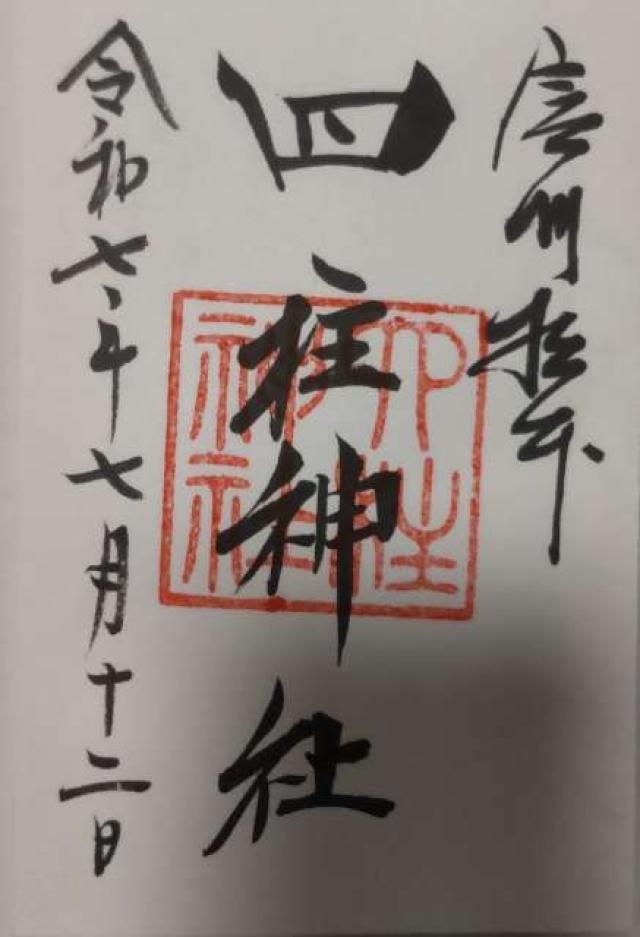 信州松本
四柱神社
四柱神社
令和七年七月十二日